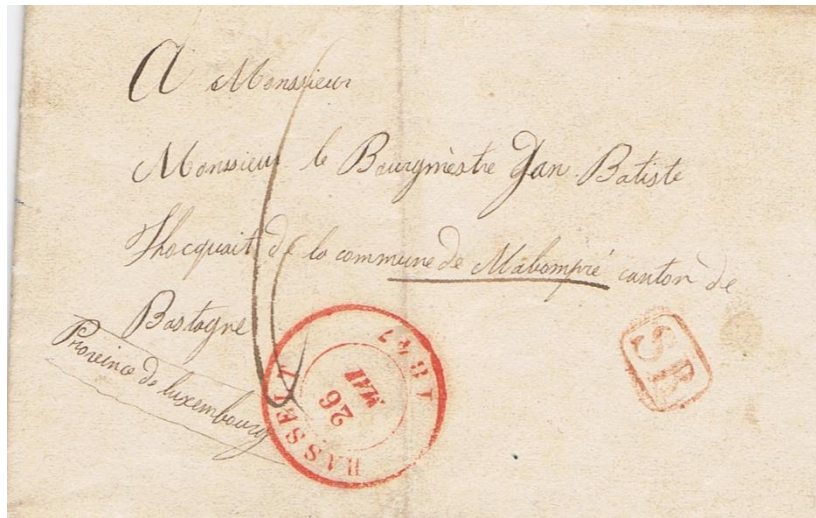 A Monsieur
Monsieur le Bourgmèstre Jan Batiste
Thocquait de la commune de Mabompré canton de
Bastogne
Province de luxembourg
6
HASSELT
26
MAI
1847
SR